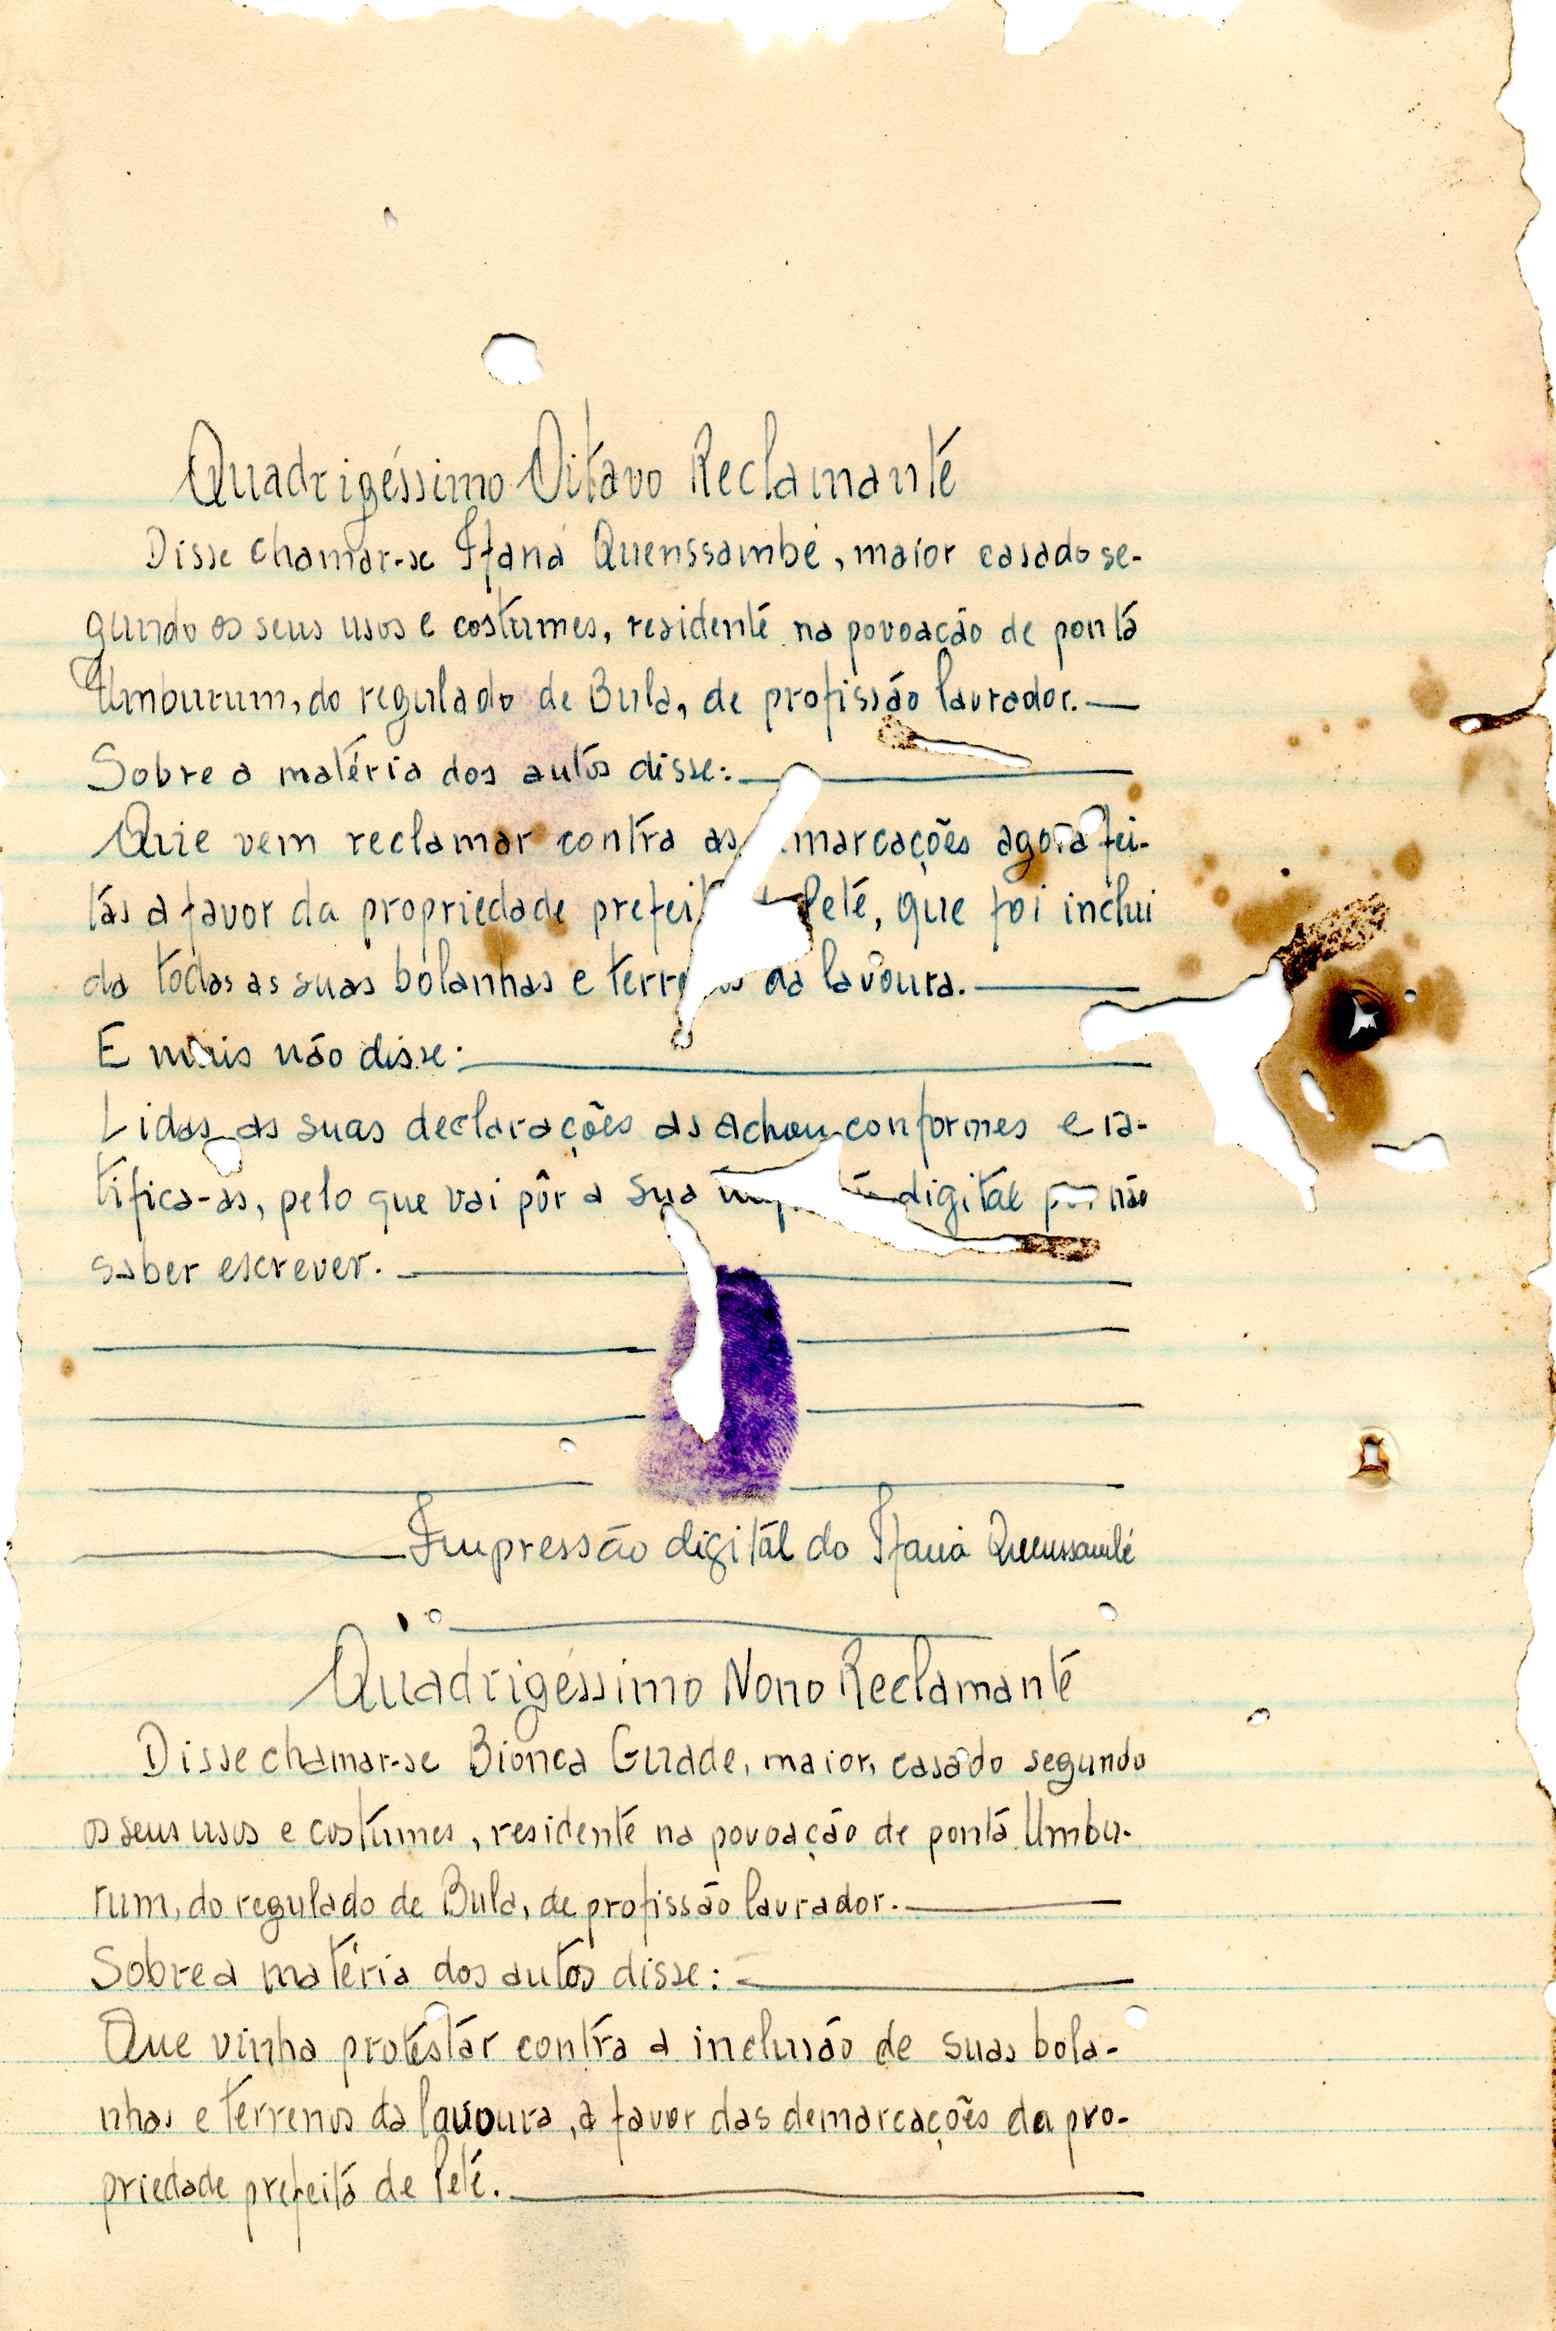 Quadrigéssimo Oitavo Reclamante
Disse chamar-se Ifaná Quenssambé, maior casado se-
gundo os seus usos e costumes, residente na povoação de ponta
Umburum, do regulado de Bula, de profissão lavrador.
Sobre a matéria dos autos disse:
Que vem reclamar contra as marcações agora fei-
tas a favor da propriedade Peté, que foi inclui
do todas as suas bolanhas e da lavoura.
E mais não disse.
Lidas as suas declarações as achou conformes e ra-
tifica-as, pelo que vai pôr a sua digital por não
saber escrever.
Impressão digital do Ifaná Quenssambé
Quadrigéssimo Nono Reclamante
Disse chamar-se Bionca Guade, maior, casado segundo
os seus usos e costumes, residente na povoação de ponta Umbu-
rum, do regulado de Bula, de profissão lavrador.
Sobre a matéria dos autos disse:
Que vinha protestar contra a inclusão de suas bola-
nhas e terrenos da lavoura, a favor das demarcações da pro-
priedade prefeita de Peté.